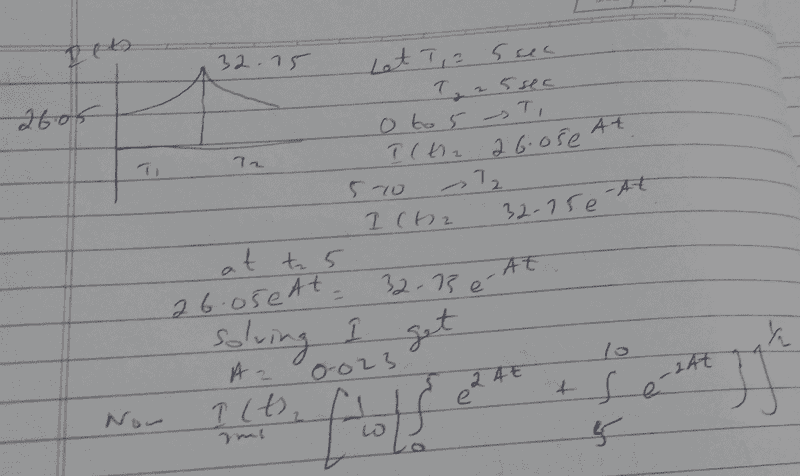 I(t)
32.75
26.05
T1 T2
Let T1 = 5 sec
T2 = 5 sec
0 to 5 → T1
I(t) = 26.05e^At
5-10 → T2
I(t) = 32.75e^-At
at t = 5
26.05e^At = 32.75 e^-At
solving I get
A = 0.023
Now I(t)rms = [1/10 [∫0^5 e^2At + ∫5^10 e^-2At ]]^1/2